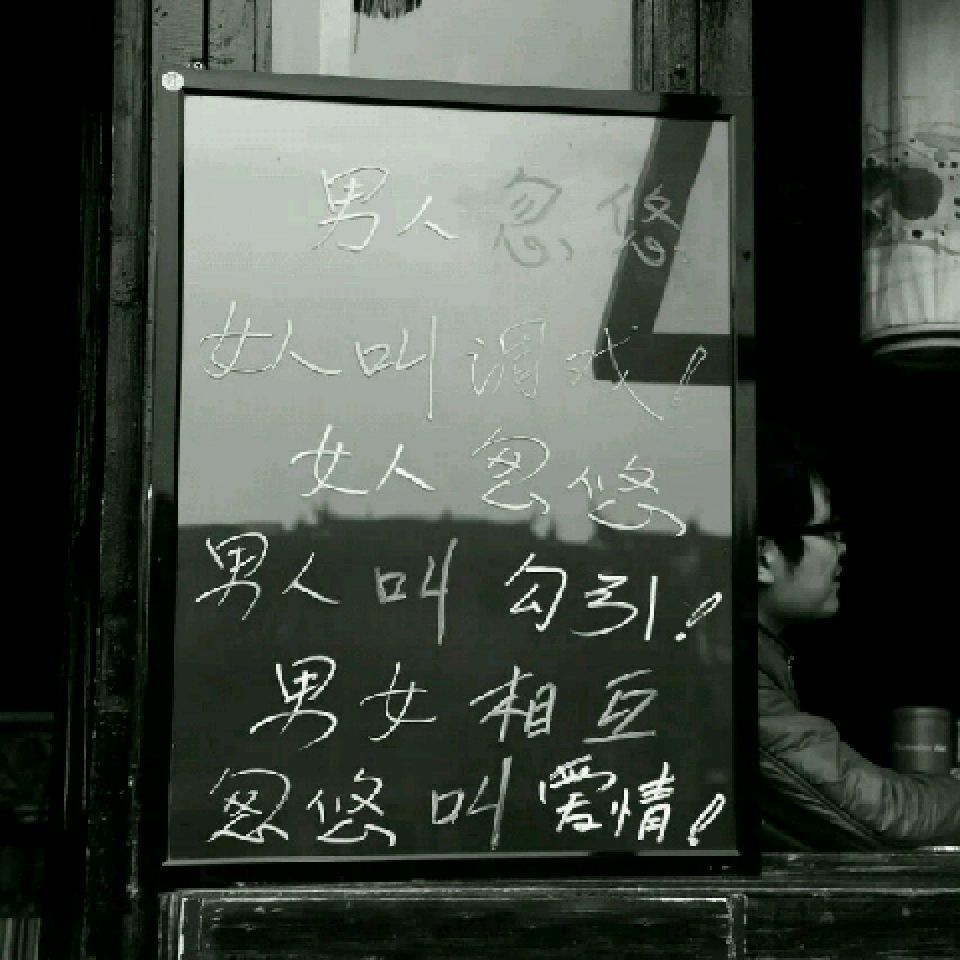 男人忽悠
女人叫调戏!
女人忽悠
男人叫勾引!
男女相互
忽悠叫爱情!